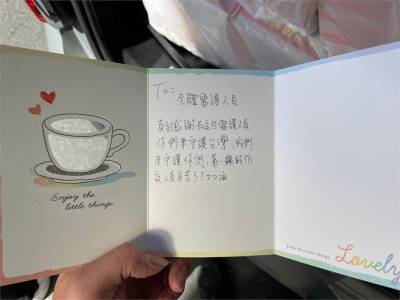 Enjoy the
little things
To:
全體醫護人員
真的感謝有這些醫護人員
你們來守護台灣,我們
來守護你們,第一線防疫
人員辛苦了!加油
Enjoy the little things
Lovely